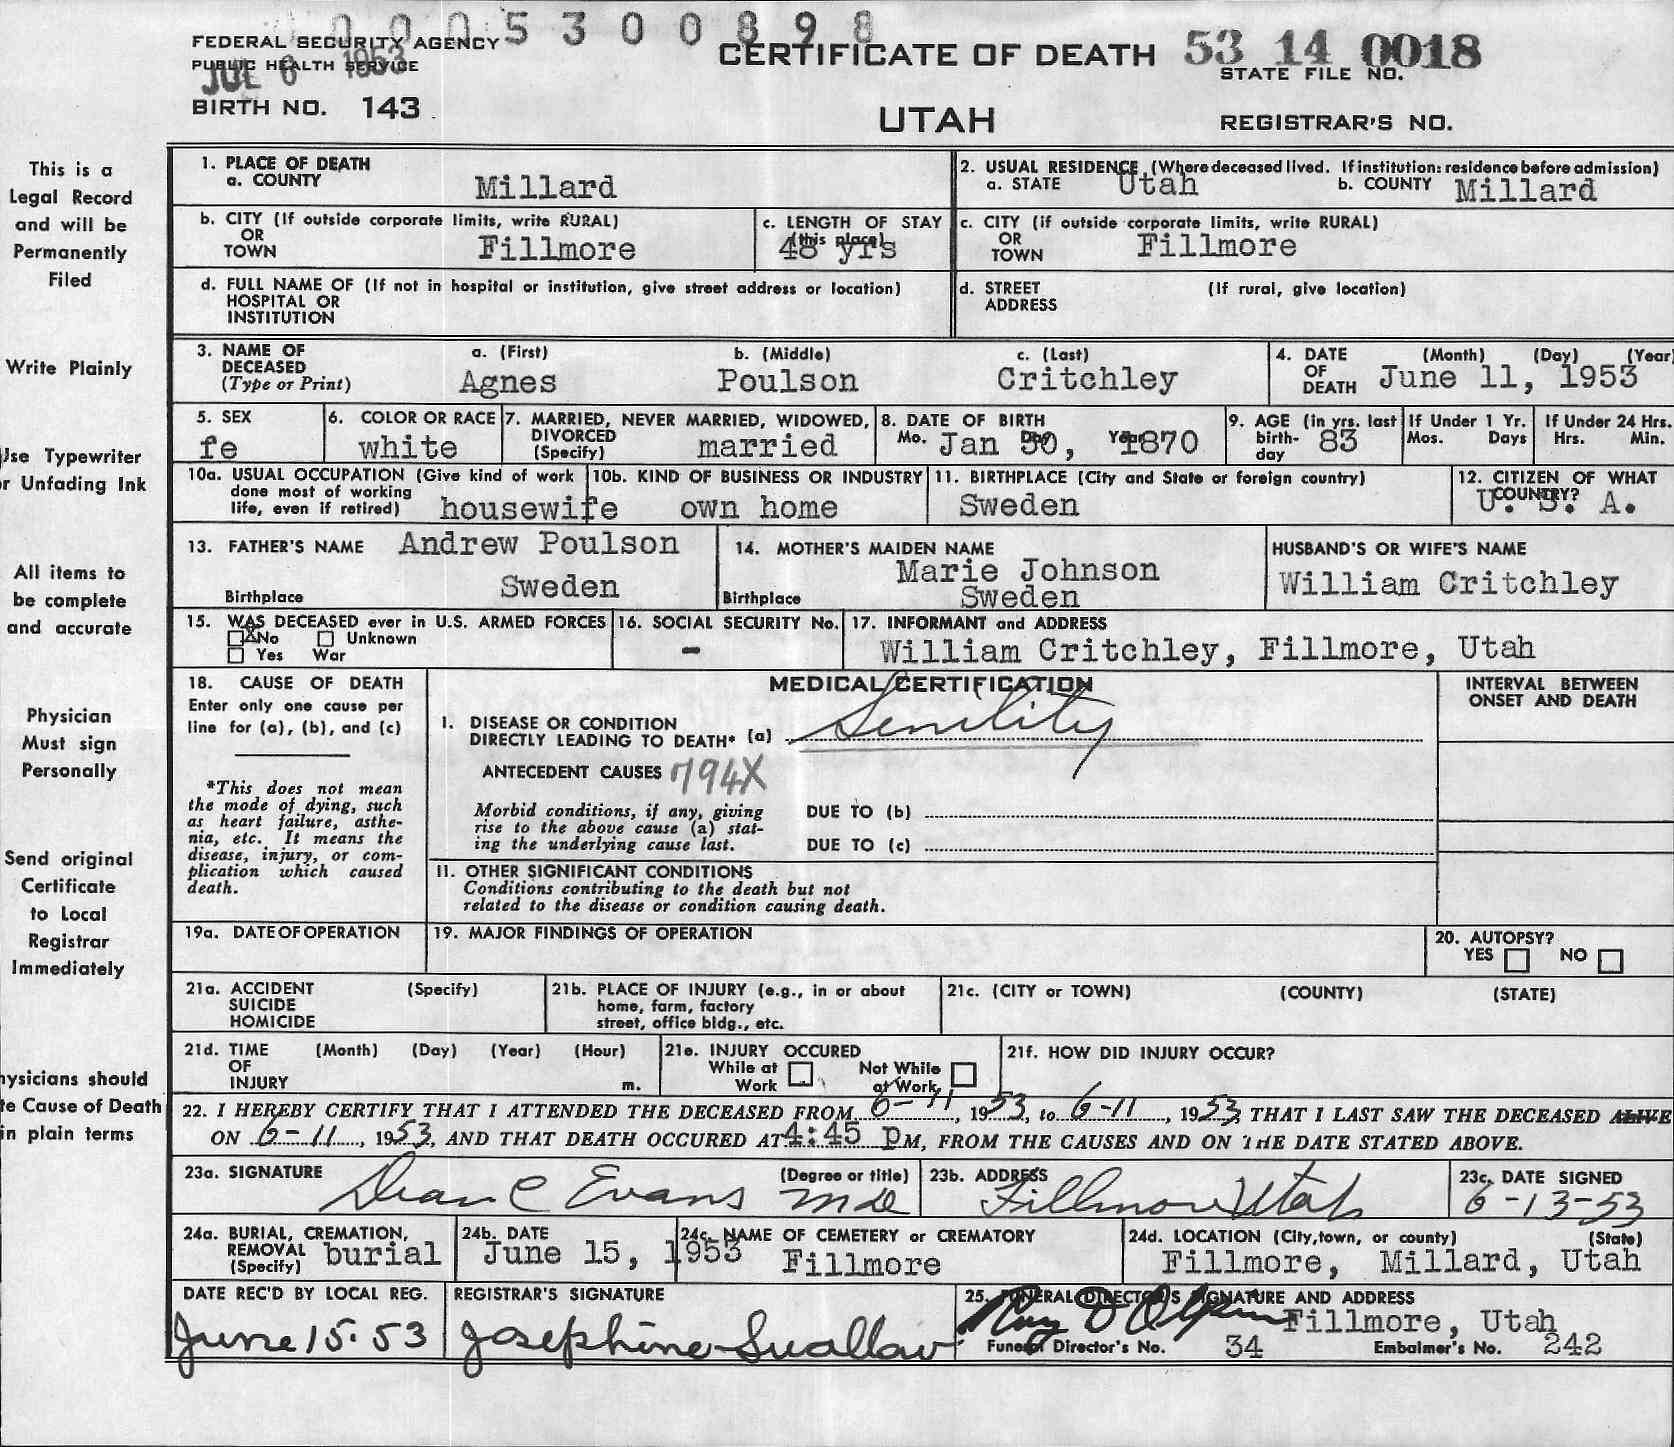 0 0 0 5 3 0 0 8 9 8
FEDERAL SECURITY AGENCY
PUBLIC HEALTH SERVICE
JUL 6 1953
BIRTH NO. 143
CERTIFICATE OF DEATH
UTAH
53 14 0018
STATE FILE NO.
REGISTRAR'S NO.
This is a
Legal Record
and will be
Permanently
Filed
Write Plainly
Use Typewriter
or Unfading Ink
All items to
be complete
and accurate
Physician
Must sign
Personally
Send original
Certificate
to Local
Registrar
Immediately
hysicians should
te Cause of Death
in plain terms
1. PLACE OF DEATH
a. COUNTY Millard
2. USUAL RESIDENCE (Where deceased lived. If institution: residence before admission)
a. STATE Utah b. COUNTY Millard
b. CITY (If outside corporate limits, write RURAL)
OR
TOWN Fillmore
c. LENGTH OF STAY
(this place)
48 yrs
c. CITY (if outside corporate limits, write RURAL)
OR
TOWN Fillmore
d. FULL NAME OF (If not in hospital or institution, give street address or location)
HOSPITAL OR
INSTITUTION
d. STREET (If rural, give location)
ADDRESS
3. NAME OF a. (First) b. (Middle) c. (Last)
DECEASED
(Type or Print) Agnes Poulson Critchley
4. DATE (Month) (Day) (Year)
OF
DEATH June 11, 1953
5. SEX
fe
6. COLOR OR RACE
white
7. MARRIED, NEVER MARRIED, WIDOWED,
DIVORCED
(Specify) married
8. DATE OF BIRTH
Mo. Day Year
Jan 30, 1870
9. AGE (in yrs. last
birth-
day 83
If Under 1 Yr.
Mos. Days
If Under 24 Hrs.
Hrs. Min.
10a. USUAL OCCUPATION (Give kind of work
done most of working
life, even if retired) housewife
10b. KIND OF BUSINESS OR INDUSTRY
own home
11. BIRTHPLACE (City and State or foreign country)
Sweden
12. CITIZEN OF WHAT
COUNTRY?
U. S. A.
13. FATHER'S NAME Andrew Poulson
Birthplace Sweden
14. MOTHER'S MAIDEN NAME
Marie Johnson
Birthplace Sweden
HUSBAND'S OR WIFE'S NAME
William Critchley
15. WAS DECEASED ever in U.S. ARMED FORCES
X No Unknown
Yes War
16. SOCIAL SECURITY No.
-
17. INFORMANT and ADDRESS
William Critchley, Fillmore, Utah
18. CAUSE OF DEATH
Enter only one cause per
line for (a), (b), and (c)
*This does not mean
the mode of dying, such
as heart failure, asthe-
nia, etc. It means the
disease, injury, or com-
plication which caused
death.
MEDICAL CERTIFICATION
I. DISEASE OR CONDITION
DIRECTLY LEADING TO DEATH* (a) Senility
ANTECEDENT CAUSES 794X
Morbid conditions, if any, giving
rise to the above cause (a) stat-
ing the underlying cause last.
DUE TO (b)
DUE TO (c)
II. OTHER SIGNIFICANT CONDITIONS
Conditions contributing to the death but not
related to the disease or condition causing death.
INTERVAL BETWEEN
ONSET AND DEATH
19a. DATE OF OPERATION
19. MAJOR FINDINGS OF OPERATION
20. AUTOPSY?
YES NO
21a. ACCIDENT (Specify)
SUICIDE
HOMICIDE
21b. PLACE OF INJURY (e.g., in or about
home, farm, factory
street, office bldg., etc.
21c. (CITY or TOWN) (COUNTY) (STATE)
21d. TIME (Month) (Day) (Year) (Hour)
OF
INJURY m.
21e. INJURY OCCURED
While at Work Not While at Work
21f. HOW DID INJURY OCCUR?
22. I HEREBY CERTIFY THAT I ATTENDED THE DECEASED FROM 6-11, 1953, to 6-11, 1953, THAT I LAST SAW THE DECEASED ALIVE
ON 6-11, 1953, AND THAT DEATH OCCURED AT 4:45 PM, FROM THE CAUSES AND ON THE DATE STATED ABOVE.
23a. SIGNATURE (Degree or title)
Dean C Evans MD
23b. ADDRESS
Fillmore Utah
23c. DATE SIGNED
6-13-53
24a. BURIAL, CREMATION,
REMOVAL
(Specify) burial
24b. DATE
June 15, 1953
24c. NAME OF CEMETERY or CREMATORY
Fillmore
24d. LOCATION (City, town, or county) (State)
Fillmore, Millard, Utah
DATE REC'D BY LOCAL REG.
June 15-53
REGISTRAR'S SIGNATURE
Josephine Swallow
25. FUNERAL DIRECTOR'S SIGNATURE AND ADDRESS
Fillmore, Utah
Funeral Director's No. 34 Embalmer's No. 242